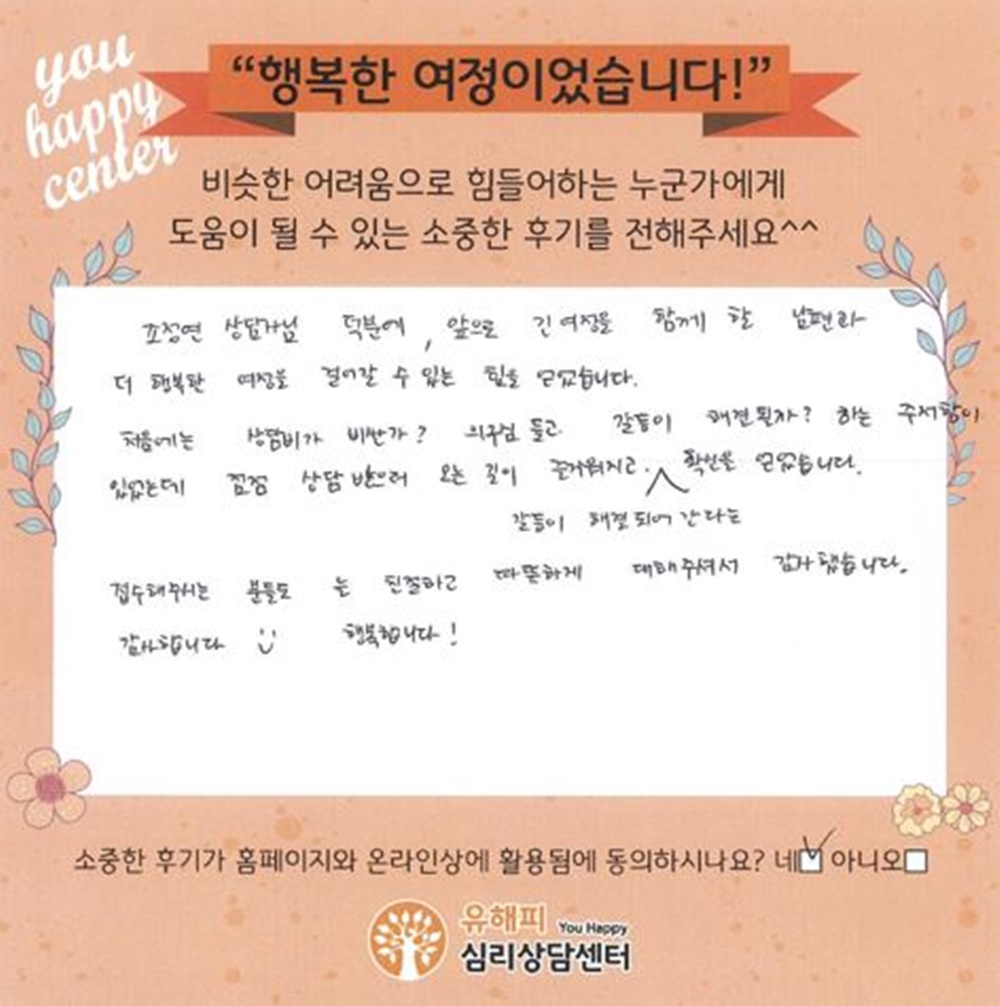 you
happy
center
“행복한 여정이었습니다!”
비슷한 어려움으로 힘들어하는 누군가에게
도움이 될 수 있는 소중한 후기를 전해주세요^^
조정연 상담가님 덕분에, 앞으로 긴 여정을 함께 할 남편과
더 행복한 여정을 걸어갈 수 있는 힘을 얻었습니다.
처음에는 상담비가 비싼가? 의구심 들고 갈등이 해결될까? 하는 주저함이
있었는데 점점 상담 받으러 오는 길이 즐거워지고. 확신을 얻었습니다.
갈등이 해결되어 간다는
접수해주시는 분들도 는 친절하고 따뜻하게 대해주셔서 감사했습니다.
감사합니다 :) 행복합니다!
소중한 후기가 홈페이지와 온라인상에 활용됨에 동의하시나요? 네☑ 아니오□
유해피 You Happy
심리상담센터